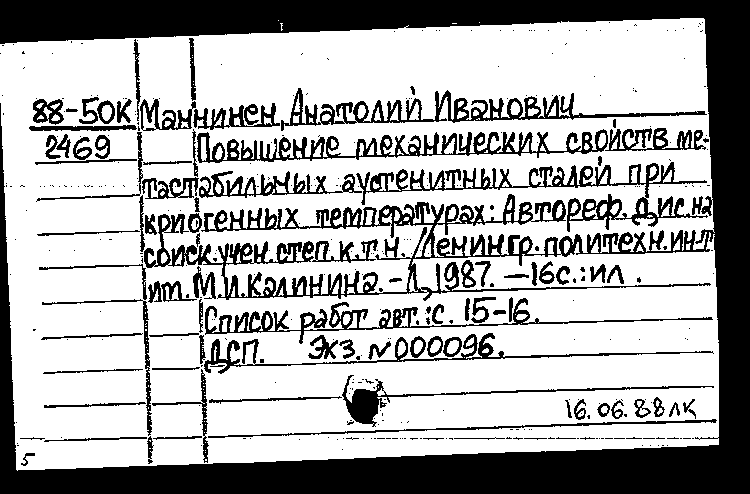 88-50К Маннинен, Анатолий Иванович.
2469 Повышение механических свойств ме-
тастабильных аустенитных сталей при
криогенных температурах: Автореф. дис. на
соиск. учен. степ. к.т.н. /Ленингр. политехн. ин-т
им. М.И. Калинина. - Л., 1987. - 16с.: ил.
Список работ авт.: с. 15-16.
ДСП. Экз. N 000096.
16.06.88 лк
5